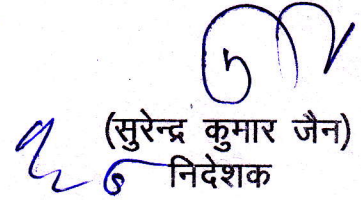 (सुरेन्द्र कुमार जैन)
निदेशक